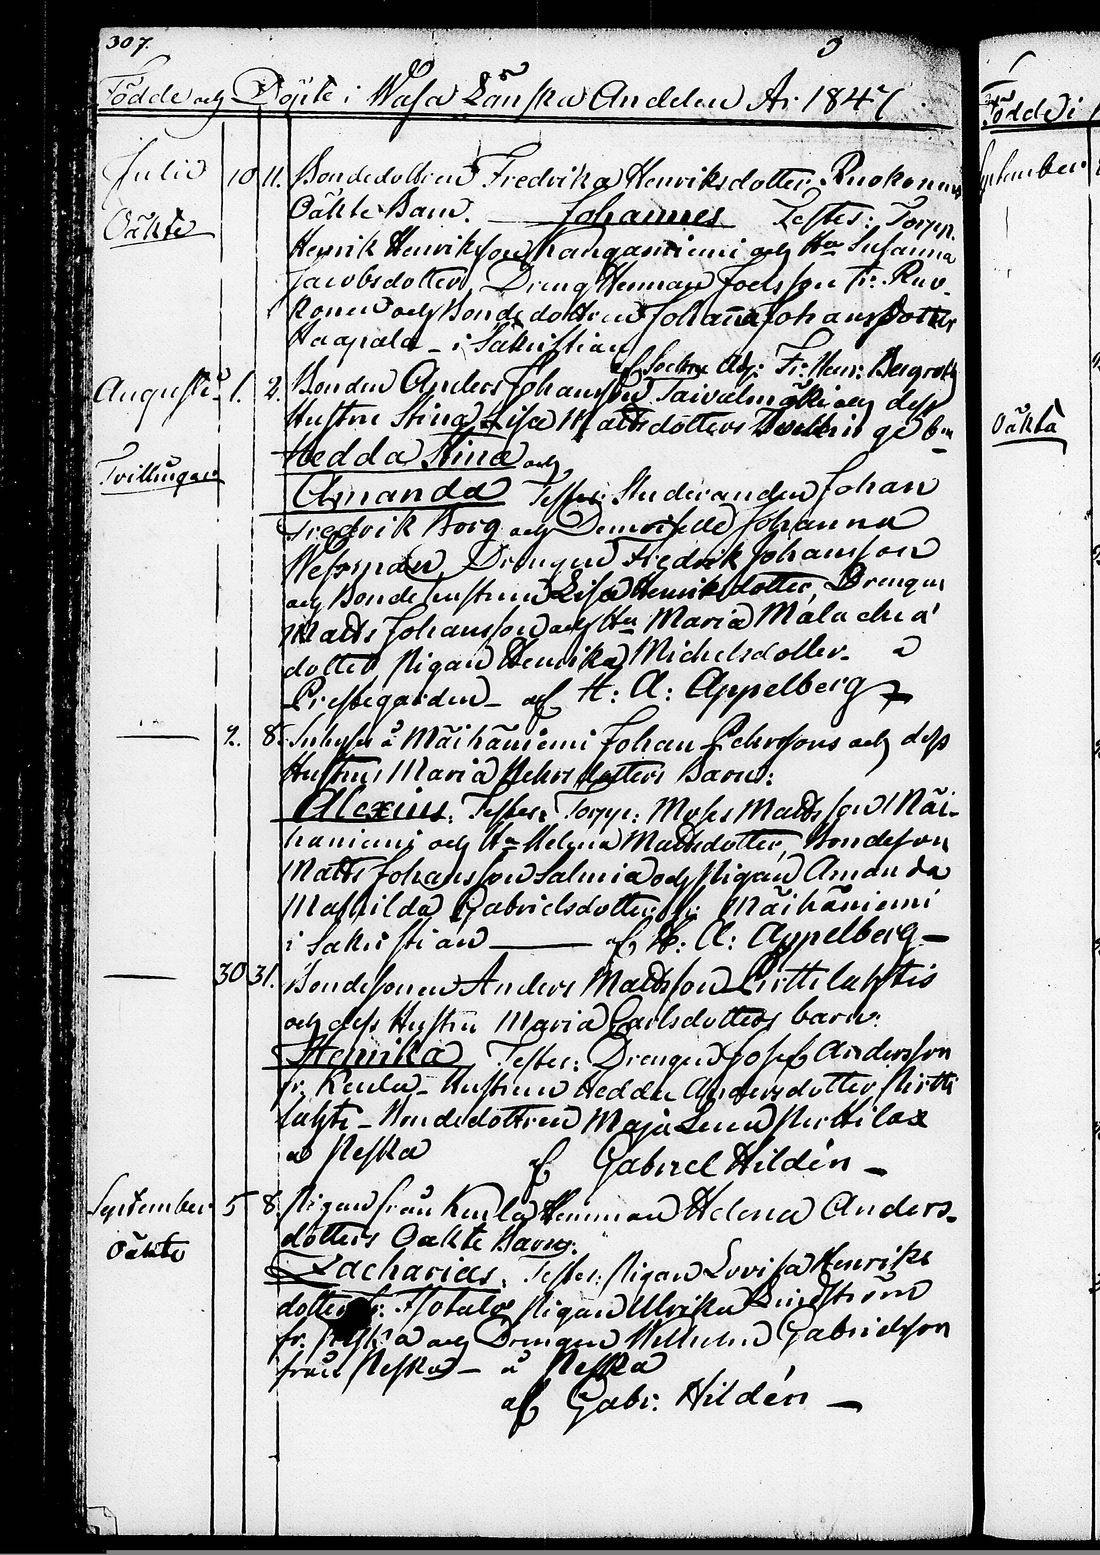 307. 3
Födde och Döpte i Wasa Länska Andelen Ar 1847
Födde i
Julii 10 11. Bondedottren Fredrika Henriksdotter Ruokonens
Oäkte Oäkta Barn. — Johannes Testes: Torpp.
Henrik Henriksson Kangasniemi och Hu Susanna
Jacobsdotter, Dreng Herman Joelsson fr. Ruo-
konen och Bonde dottren Johanna Johansdotter
Haapala – i Sakristian
af Sockn. Adj: Fr: Henr: Bergroth
Augusti 1. 2. Bonden Anders Johansson Taivalmäki och dess
Hustru Stina Lisa Mattsdotters
Hedda Stina och
Tvillingar
Amanda Testes: Studeranden Johan
Fredrik Borg och Demoiselle Johanna
Wessman, Drengen Fredrik Johansson
och Bonde hustrun Lisa Henriksdotter, Drengen
Matts Johansson och Hu Maria Malachia
dotter Pigan Henrika Michelsdotter. a
Prestegarden – af H: A: Appelberg
— 2. 8. Inhyses å Mäihäniemi Johan Pehrssons och dess
Hustrus Maria Pehrsdotters Barn:
Alexius. Testes: Torpp: Moses Mattsson Mäi-
häniemi och Hu Helena Mattsdotter, Bondeson
Matts Johansson Salmia och Pigan Amanda
Mathilda Gabrielsdotter fr. Mäihäniemi
i Sakristian — af H: A: Appelberg –
— 30 31. Bondesonen Anders Mattsson Pirttilahtis
och dess Hustru Maria Carlsdotters barn:
Henrika Testes: Drengen Josef Andersson
fr. Keula – Hustrun Hedda Andersdotter Pirtti
lahti – Bondedottren Maja Lena Perttilax
a Peska af Gabriel Hildén –
September 5 8. Pigan från Keula Hemman Helena Anders-
Oäkte dotters Oäkte Barn:
Zacharias. Testes: Pigan Lovisa Henriks
dotter fr. Pigan Ulrika
fr. Peska och Drengen Wilhelm Gabrielsson
från Peska – å Peska
af Gabr: Hildén –
September
Oäkta